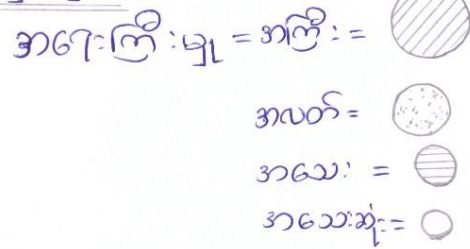 အရေးကြီးမှု = အကြီး =
အလတ် =
အသေး =
အသေးဆုံး =